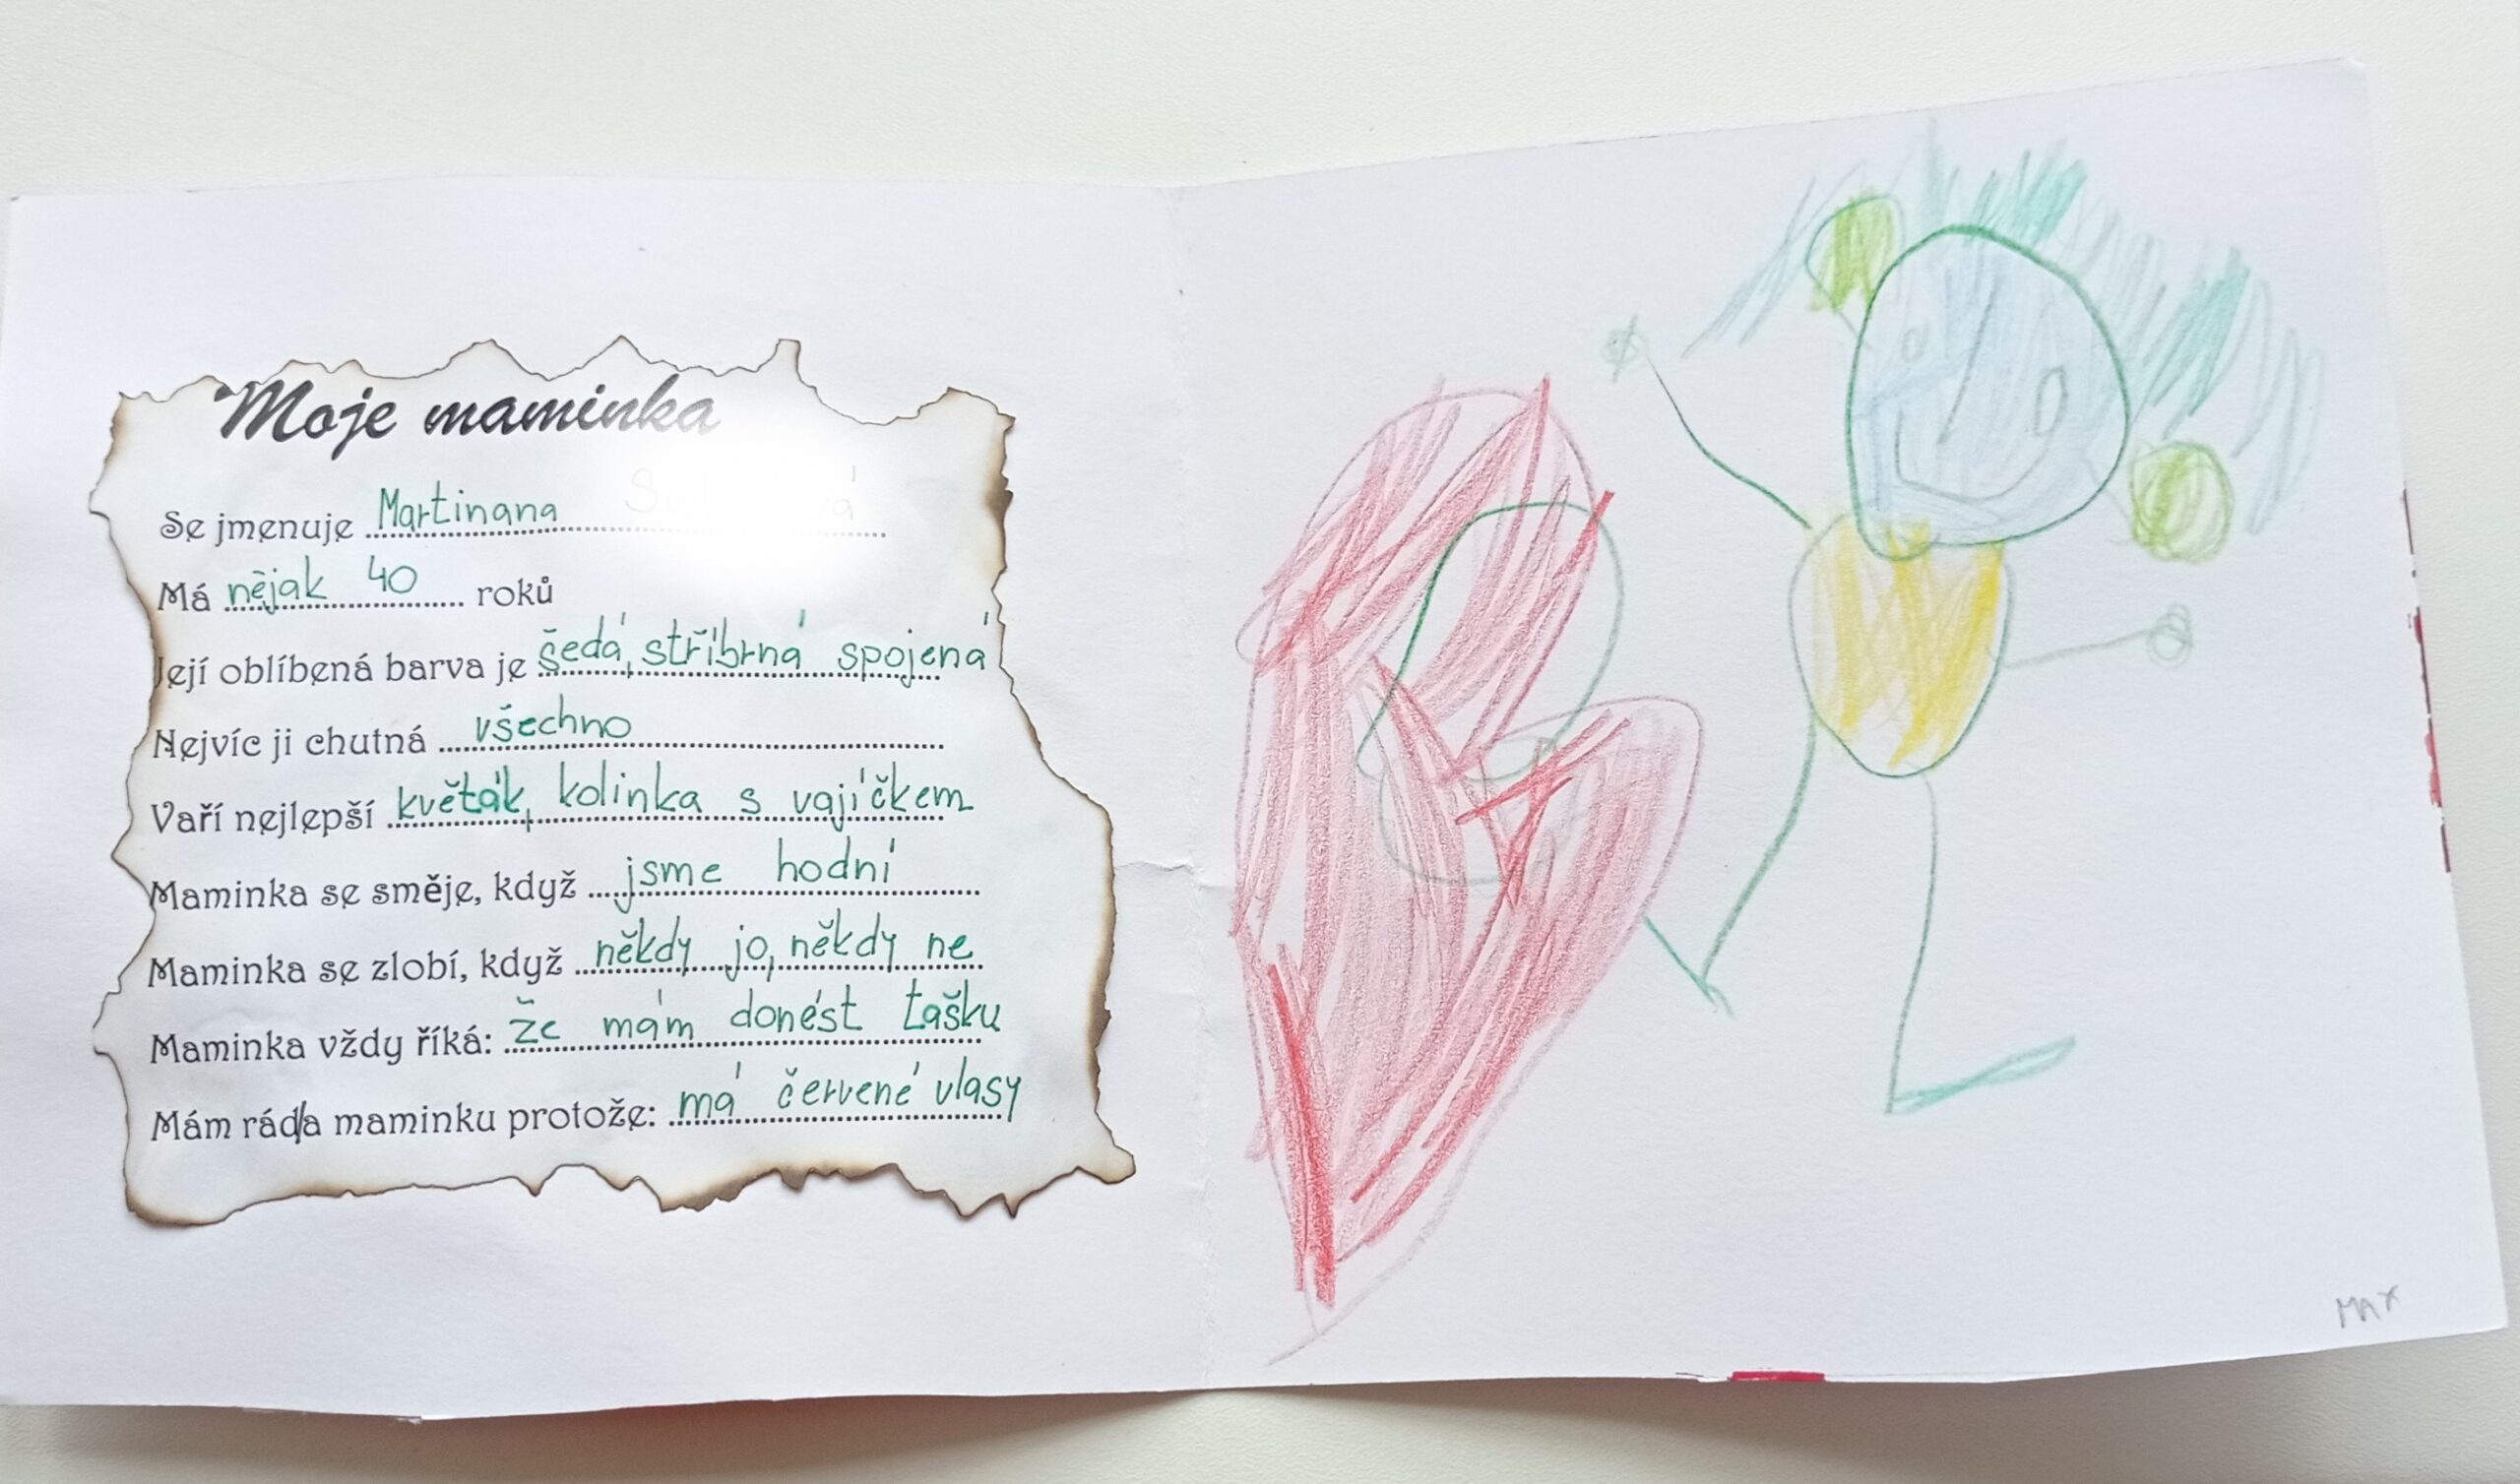 Moje maminka
Se jmenuje Martinana
Má nějak 40 roků
Její oblíbená barva je šedá, stříbrná spojená
Nejvíc ji chutná všechno
Vaří nejlepší květák, kolinka s vajíčkem
Maminka se směje, když jsme hodní
Maminka se zlobí, když někdy jo, někdy ne
Maminka vždy říká: že mám donést tašku
Mám rád/a maminku protože: má červené vlasy
MAX